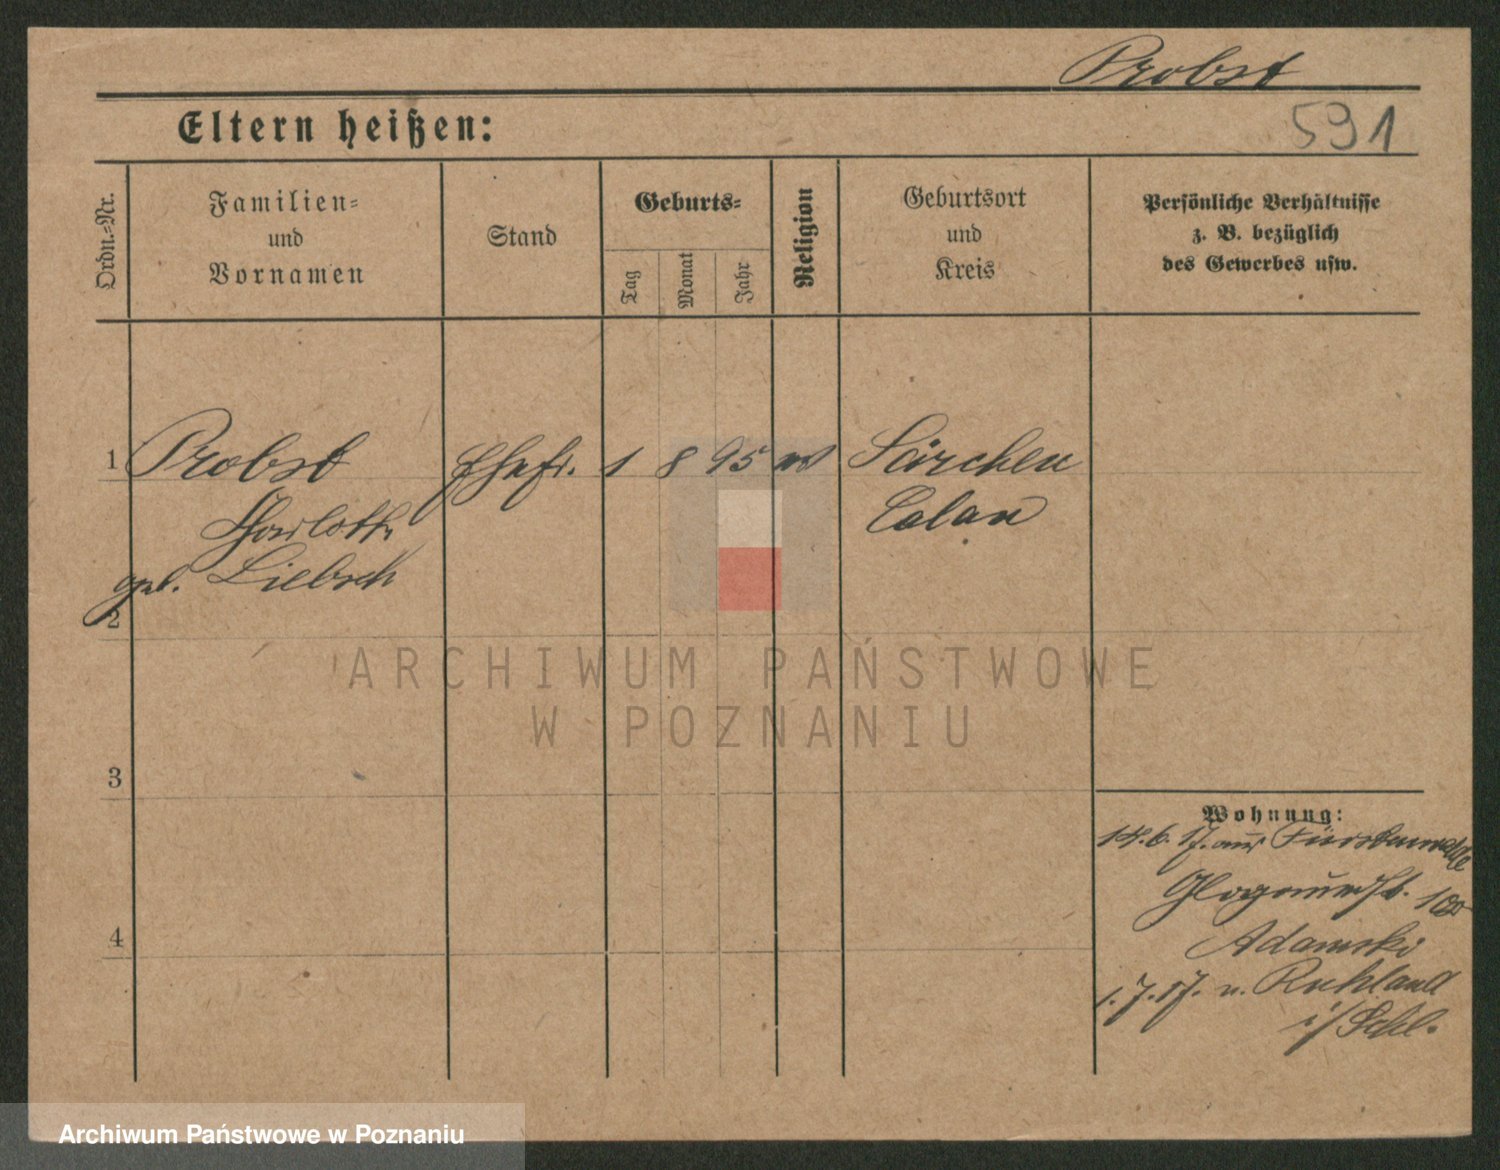 Probst
591
Eltern heißen:
Ordn.-Nr.
Familien-
und
Vornamen
Stand
Geburts-
Tag
Monat
Jahr
Religion
Geburtsort
und
Kreis
Persönliche Verhältnisse
z. B. bezüglich
des Gewerbes usw.
1 Probst Ehefr. 1 8 95 Särchen
Charlotte Calau
geb. Liebsch
2
3
4
Wohnung:
14.6.17. aus Fürstenwalde
Glogauerst.
Adamski
1.7.17. n. Ruhland
i/Schl.
ARCHIWUM PAŃSTWOWE
W POZNANIU
Archiwum Państwowe w Poznaniu